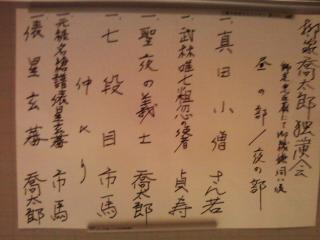 柳家喬太郎独演会
昼の部/夜の部
一、真田小僧 さん若
一、武林唯七粗忽の使者 貞寿
一、聖夜の義士 喬太郎
一、七段目 市馬
仲入り
一、元禄名槍譜俵星玄蕃 市馬
一、俵星玄蕃 喬太郎